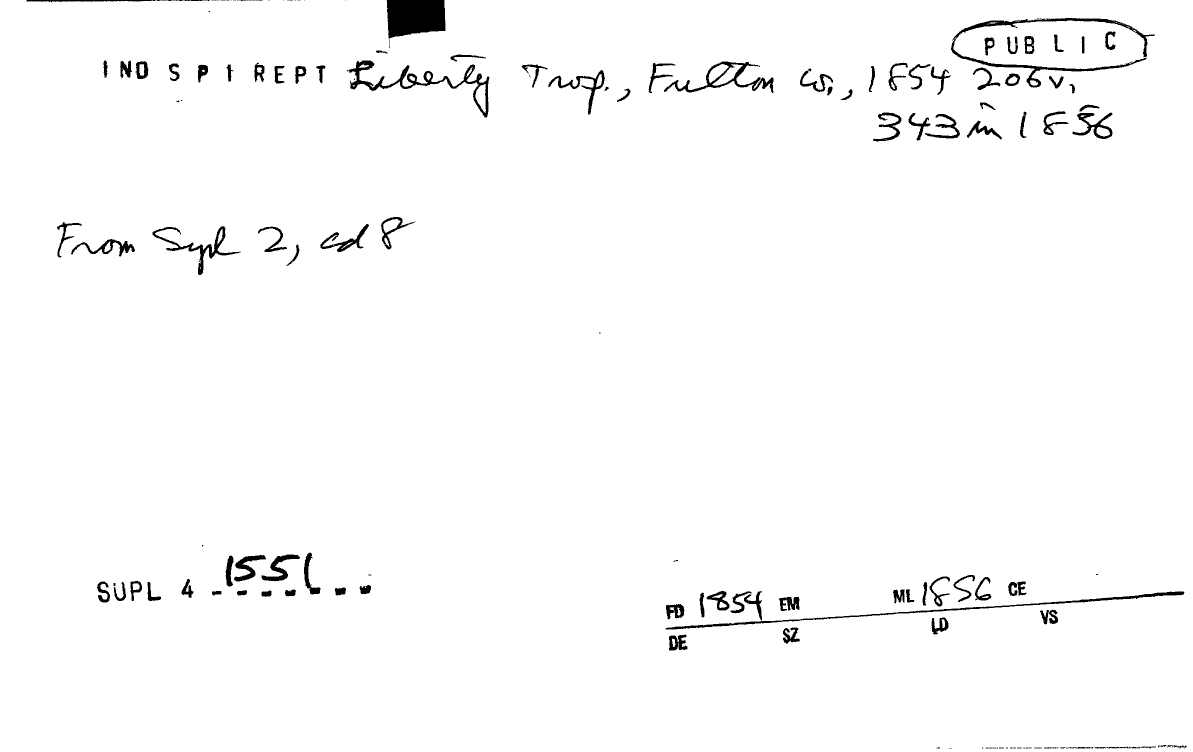 PUBLIC
IND SPI REPT Liberty Twp., Fulton Co., 1854 206v,
343 in 1856
From Supl 2, cd 8
SUPL 4 1551
FD 1854 EM ML 1856 CE
DE SZ LD VS